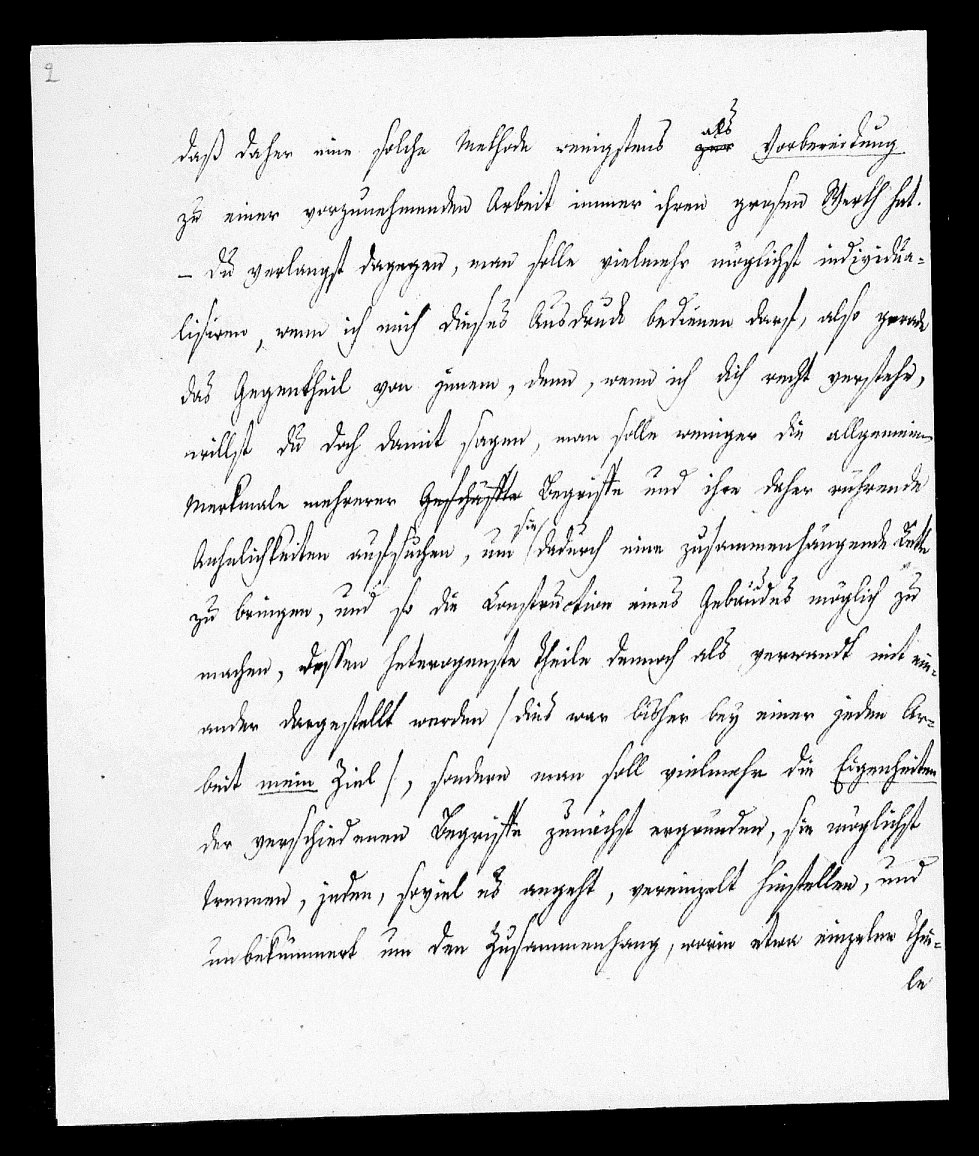 2
daß daher eine solche Methode wenigstens als Vorbereitung
zu einer vorzunehmenden Arbeit immer ihren grosen Werth hat.
– Du verlangst dagegen, man solle vielmehr möglichst individua-
lisiren, wenn ich mich dieses Ausdrucks bedienen darf, also gerade
das Gegentheil von jenem, denn, wenn ich dich recht verstehe,
willst du doch damit sagen, man solle weniger die allgemeinen
Merkmale mehrerer Geschäffte Begriffe und ihre daher rührende
Aehnlichkeiten aufsuchen, um sie dadurch eine zusammenhängende Kette
zu bringen, und so die Construction eines Gebäudes möglich zu
machen, dessen heterogenste Theile dennoch als verwandt mit ein-
ander dargestellt werden /dies war bisher bey einer jeden Ar-
beit mein Ziel/, sondern man soll vielmehr die Eigenheiten
der verschiedenen Begriffe zunächst ergründen, sie möglichst
trennen, jeden, soviel es angeht, vereinzelt hinstellen, und
unbekümmert um den Zusammenhang, worin etwa einzelne Thei-
le